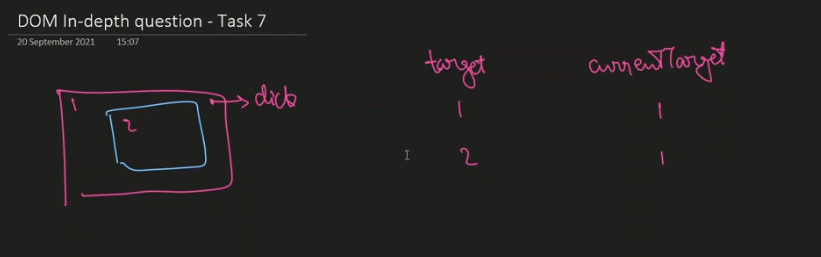 DOM In-depth question - Task 7
20 September 2021 15:07
target currentTarget
1 click
2
1 1
2 1